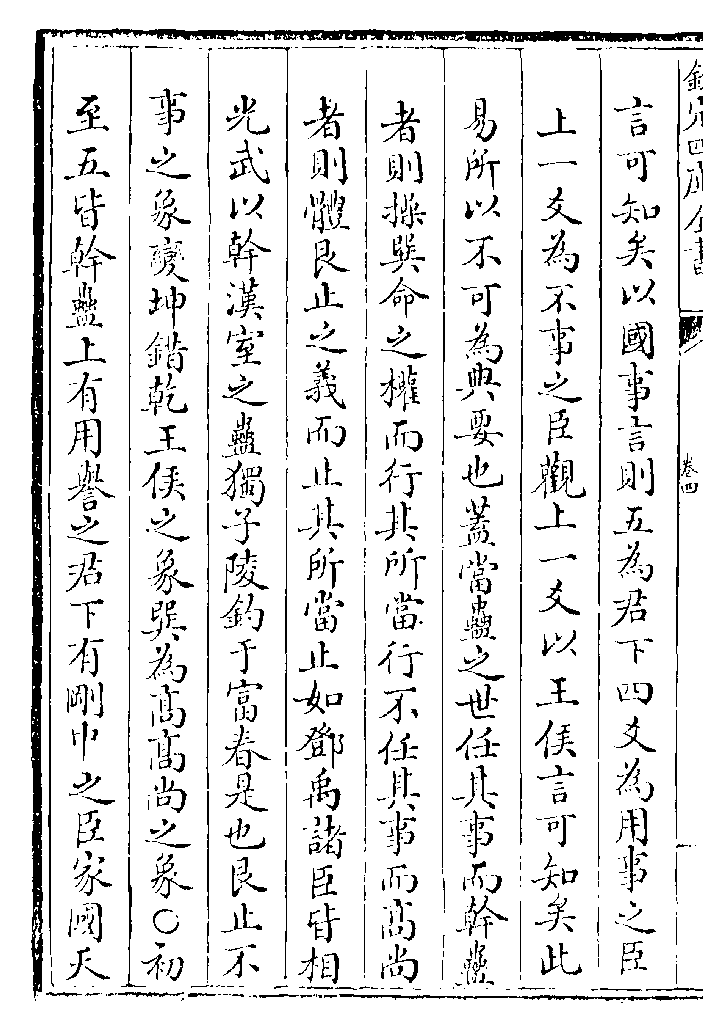 欽定四庫全書
卷四
言可知矣以國事言則五為君下四爻為用事之臣
上一爻為不事之臣觀上一爻以王侯言可知矣此
易所以不可為典要也蓋當蠱之世任其事而幹蠱
者則操巽命之權而行其所當行不任其事而高尚
者則體艮止之義而止其所當止如鄧禹諸臣皆相
光武以幹漢室之蠱獨子陵釣于富春是也艮止不
事之象變坤錯乾王侯之象巽為高高尚之象○初
至五皆幹蠱上有用譽之君下有剛中之臣家國天